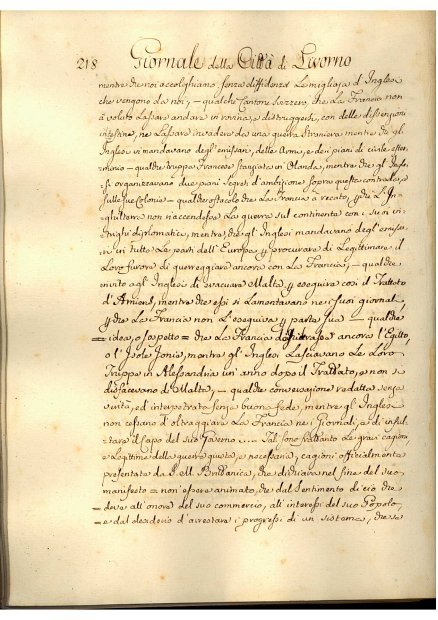 218 Giornale della Città di Livorno
mentre che noi accolghiamo senza diffidenza le migliaja d'Inglesi
che vengono da noi; = qualche Cantone Svizzero, che la Francia non
à voluto lasciare andare in rovina, e distruggersi, con delle dissenzioni
intestine, ne lasciare invadere da una guerra straniera, mentre che gl'
Inglesi vi mandavano degl'emissarj, delle Armi, e dei piani di
= qualche truppa Francese stanziata in Olanda, mentre che gl'Ingle-
si organizzavano due piani segreti d'ambizione sopra queste contrade, e
sulle sue Colonie = qualche ostacolo che la Francia à recato, che l'In-
ghilterra non riaccendesse la guerra sul continente con i suoi in-
trighi diplomatici, mentre che gl'Inglesi mandavano degl'emissa-
rj in tutte le parti dell'Europa procurare di legittimare il
loro furore di guerreggiare ancora con la Francia; = qualche
invito agl'Inglesi di evacuare Malta eseguire così il Trattato
d'Amiens, mentre che essi si lamentavano nei suoi giornali,
che la Francia non l'eseguiva parte sua = qualche
= idea, o sospetto = che la Francia desiderasse ancora l'Egitto,
o l'Isole Jonie, mentre gl'Inglesi lasciavano le loro
Truppe in Alessandria un'anno dopo il Trattato, e non si
disfacevano di Malta, = qualche conversazione redatta senza
verità, ed interpetrata senza buona fede, mentre gl'Inglesi
non cessano d'oltraggiare la Francia nei Giornali, e di insul-
tare il Capo del suo Governo .... Tali sono soltanto le gravi cagioni,
e legittime della guerra giusta, e necessaria, cagioni officialmente
presentate da S. M. Britanica, che dichiara nel fine del suo
manifesto = non essere animato, che dal sentimento di ciò che
= deve all'onore del suo commercio, all'interessi del suo Popolo,
= e dal desiderio d'arrestare i progressi di un sistema, che se